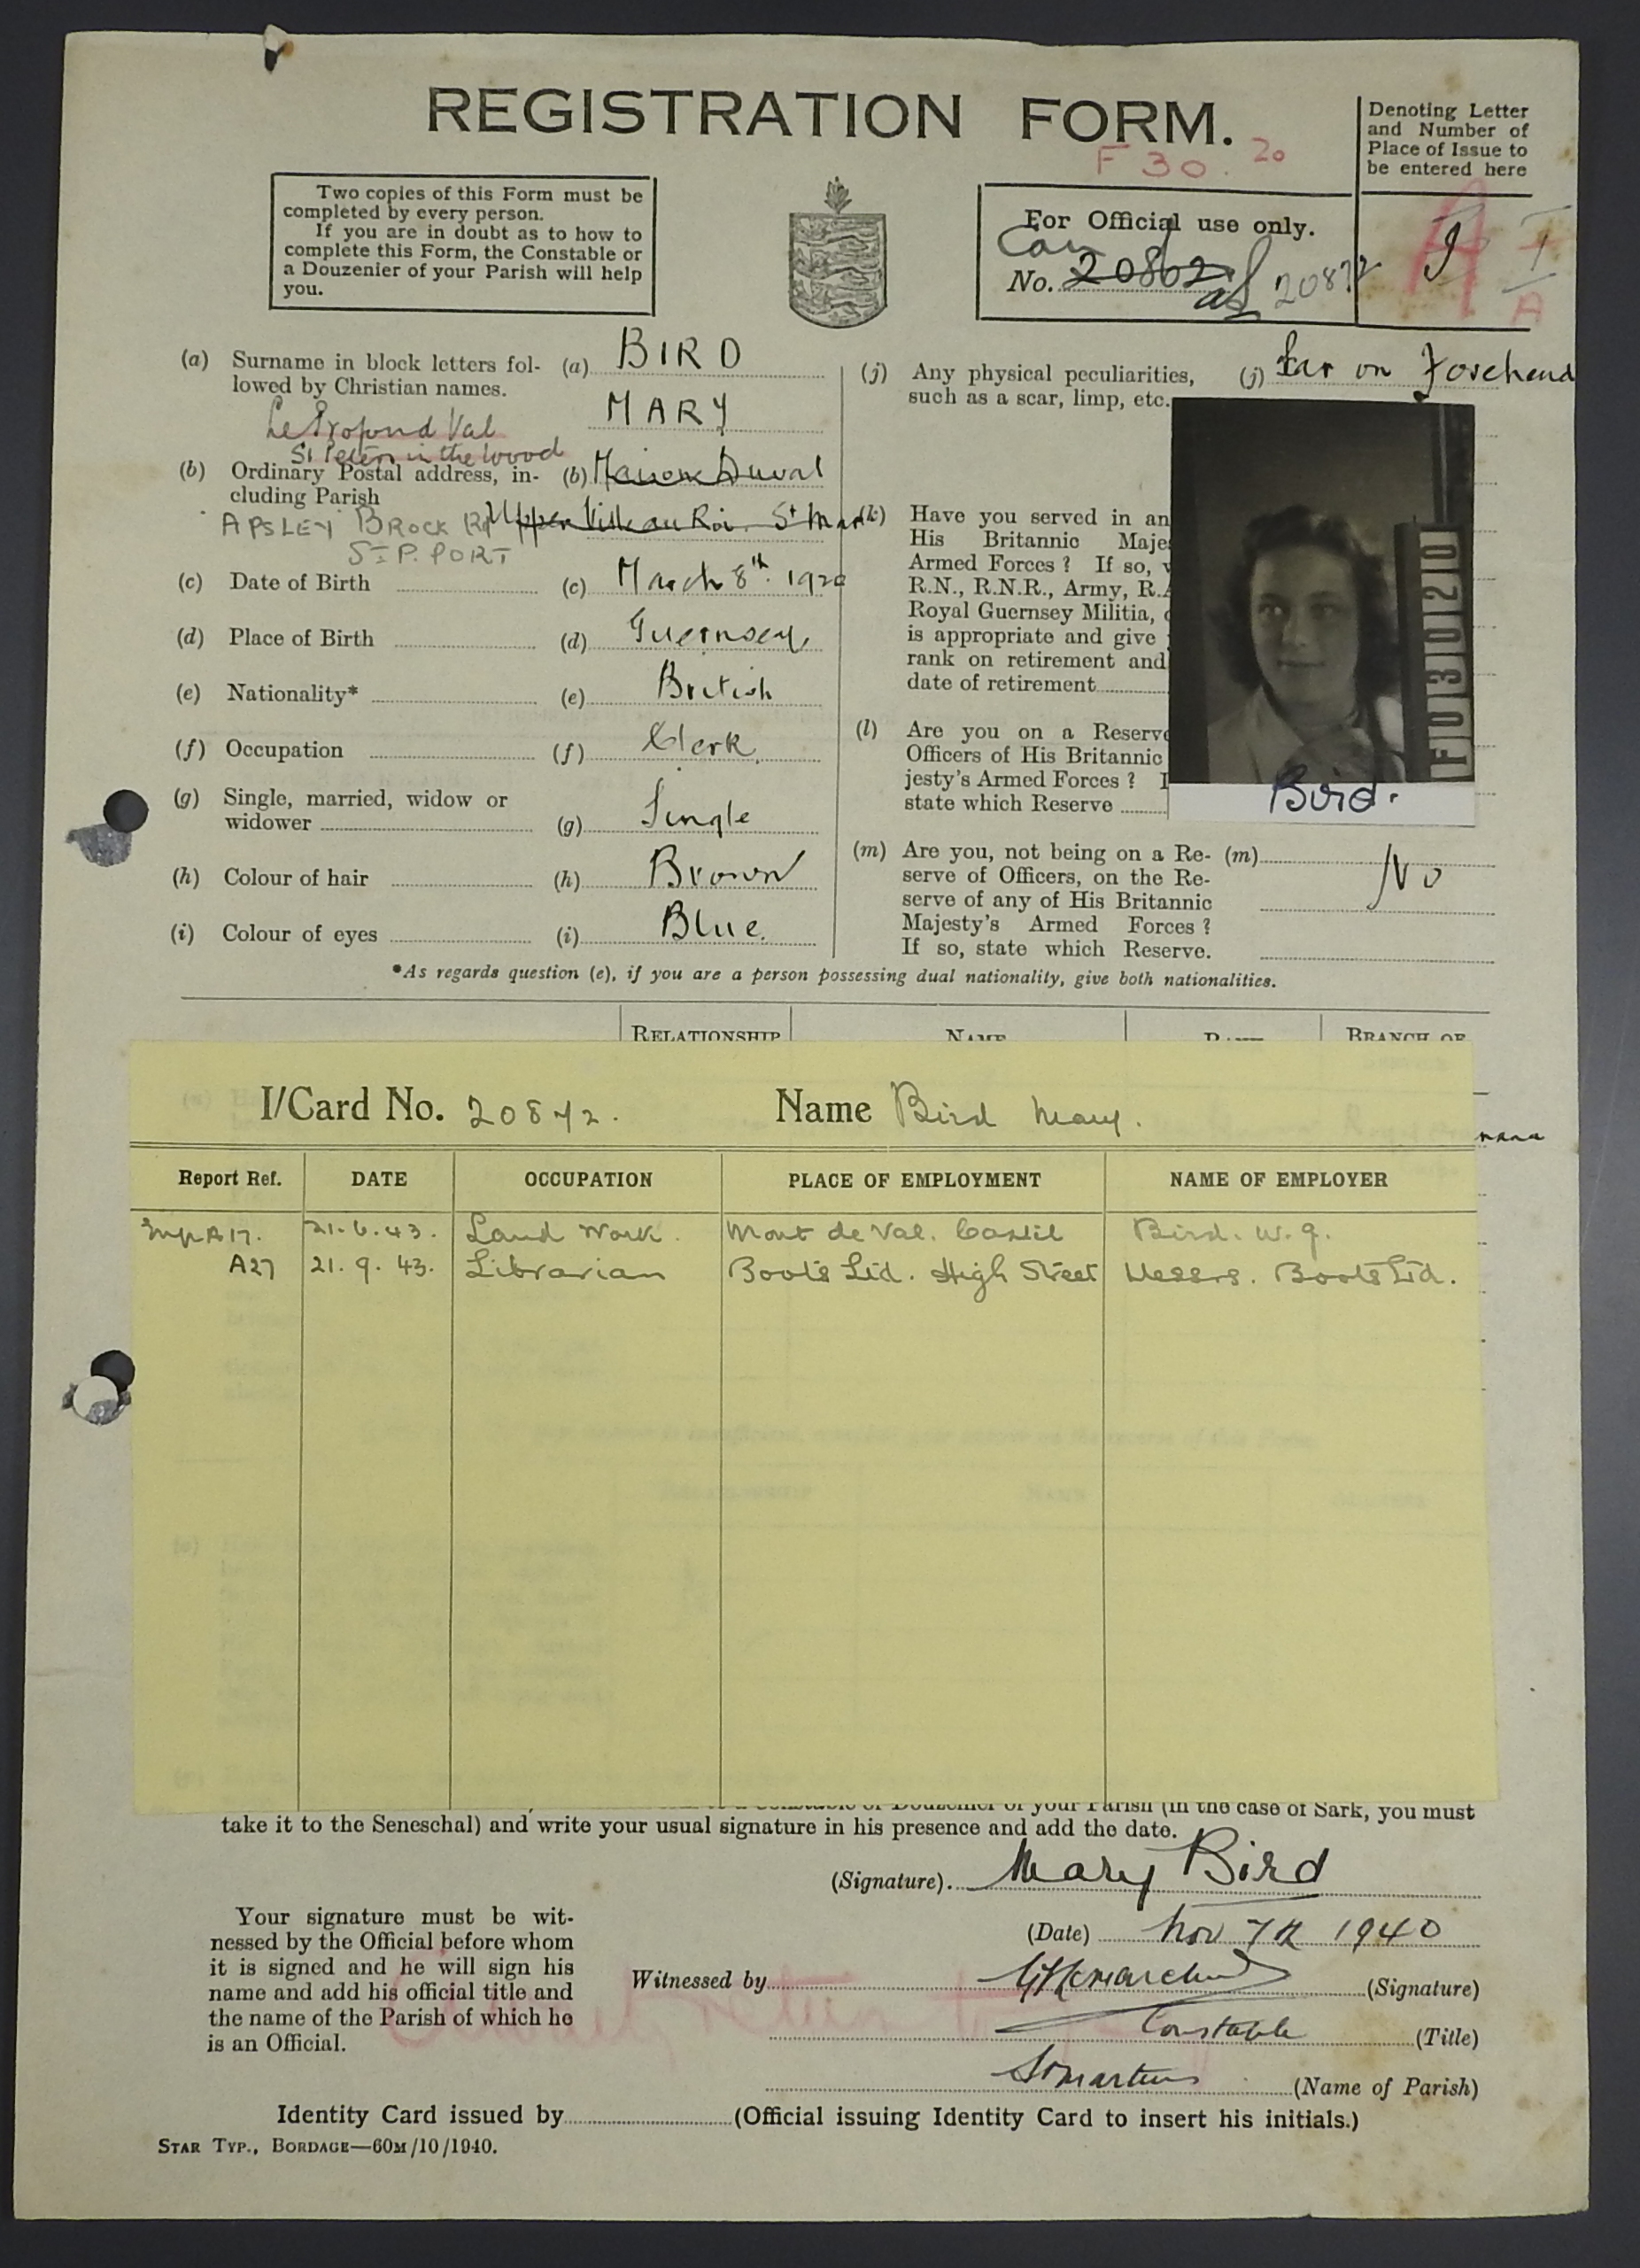 REGISTRATION FORM.
F 30. 20
Denoting Letter
and Number of
Place of Issue to
be entered here
Two copies of this Form must be
completed by every person.
If you are in doubt as to how to
complete this Form, the Constable or
a Douzenier of your Parish will help
you.
For Official use only.
No. 20802
A
A
(a) Surname in block letters fol-
lowed by Christian names.
(a) BIRD
MARY
Le Profond Val
St Peter in the Wood
(b) Ordinary Postal address, in-
cluding Parish
(b) Maison Duval
Upper Ville au Roi St Mar
APSLEY BROCK Rd
ST P. PORT
(c) Date of Birth (c) March 8th 1920
(d) Place of Birth (d) Guernsey
(e) Nationality* (e) British
(f) Occupation (f) Clerk
(g) Single, married, widow or
widower (g) Single
(h) Colour of hair (h) Brown
(i) Colour of eyes (i) Blue.
(j) Any physical peculiarities,
such as a scar, limp, etc.
(j) Scar on Forehead
(k) Have you served in an
His Britannic Majes
Armed Forces? If so,
R.N., R.N.R., Army, R.A
Royal Guernsey Militia,
is appropriate and give
rank on retirement and
date of retirement
F 0 3 0 2 0
Bird.
(l) Are you on a Reserve
Officers of His Britannic
jesty's Armed Forces? I
state which Reserve
(m) Are you, not being on a Re-
serve of Officers, on the Re-
serve of any of His Britannic
Majesty's Armed Forces?
If so, state which Reserve.
(m) No
*As regards question (e), if you are a person possessing dual nationality, give both nationalities.
RELATIONSHIP NAME RANK BRANCH OF
I/Card No. 20872. Name Bird Mary.
Report Ref. DATE OCCUPATION PLACE OF EMPLOYMENT NAME OF EMPLOYER
A17. 21.6.43. Land Work. Mont de Val. Castel Bird. W. J.
A27 21. 9. 43. Librarian Boots Ltd. High Street Messrs. Boots Ltd.
a Constable or Douzenier of your Parish (in the case of Sark, you must
take it to the Seneschal) and write your usual signature in his presence and add the date.
(Signature) Mary Bird
(Date) Nov 7th 1940
Your signature must be wit-
nessed by the Official before whom
it is signed and he will sign his
name and add his official title and
the name of the Parish of which he
is an Official.
Witnessed by (Signature)
Constable (Title)
St Martins (Name of Parish)
Identity Card issued by (Official issuing Identity Card to insert his initials.)
STAR TYP., BORDAGE—60M/10/1940.